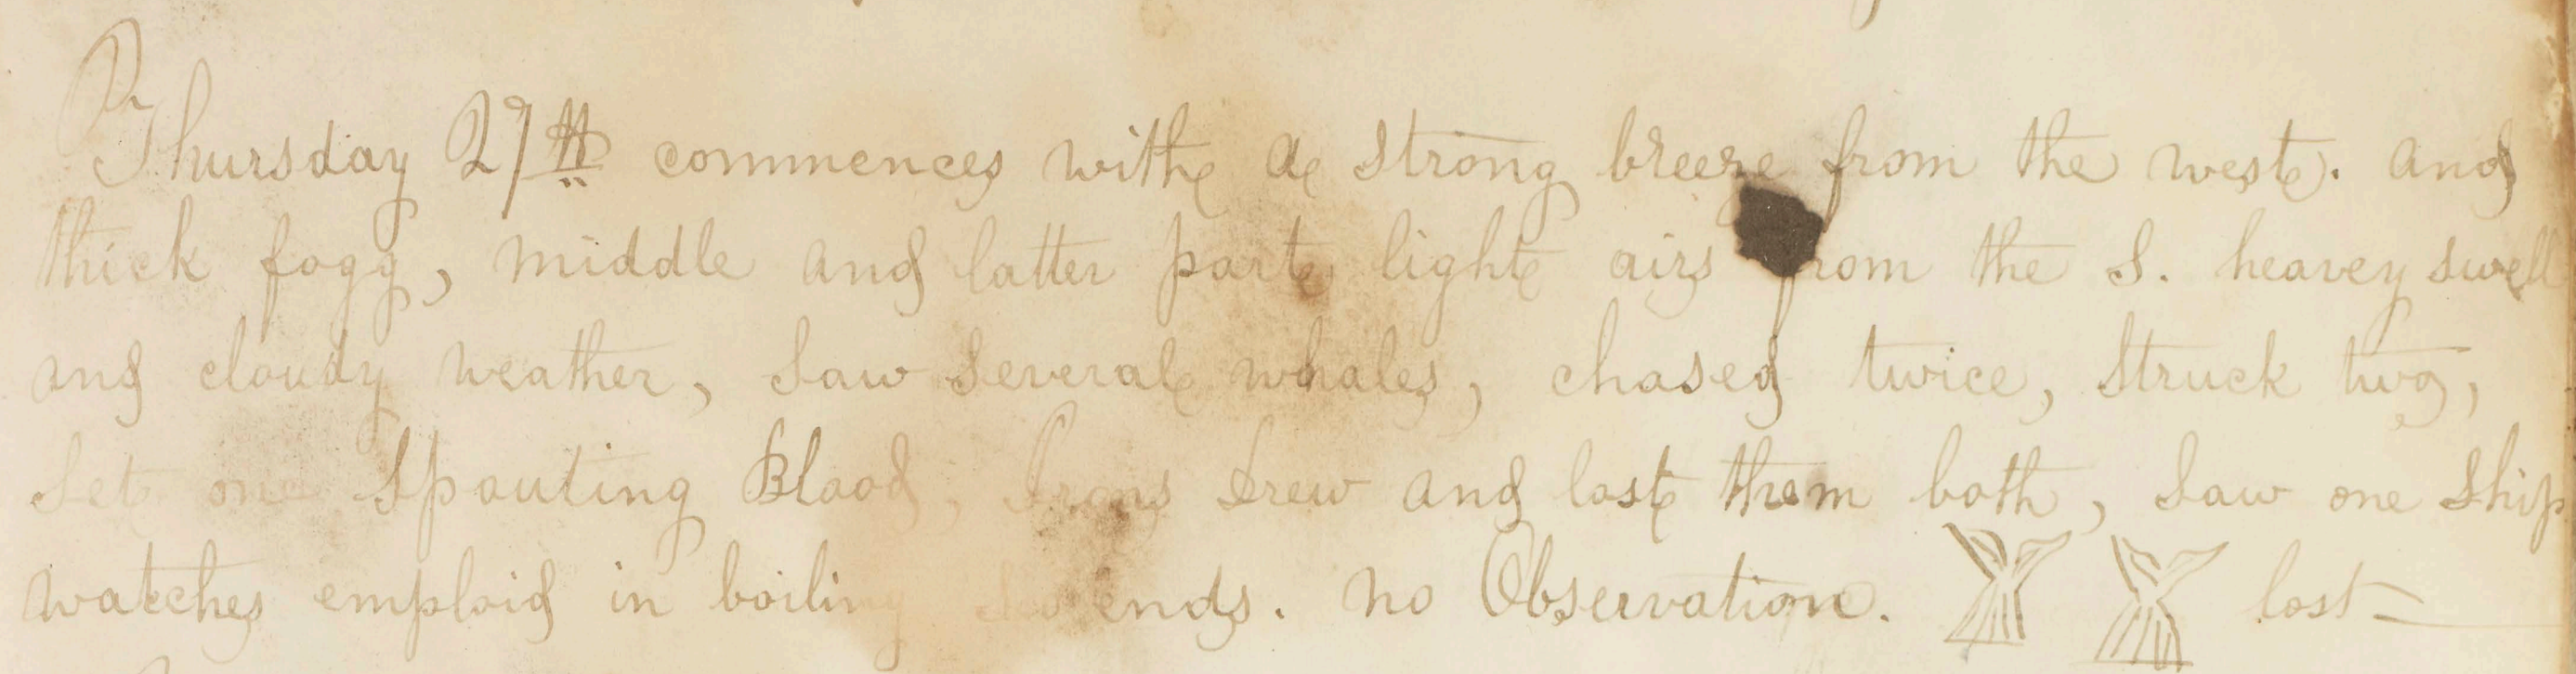 Thursday 27th commences with a strong breeze from the west. and
thick fogg, middle and latter part light airs from the S. heavey swell
and cloudy weather, Saw Several whales, chased twice, Struck two,
Set one Spouting Blood, Irons drew and lost them both, Saw one Ship
watches emploid in boiling So ends. no Observation. lost